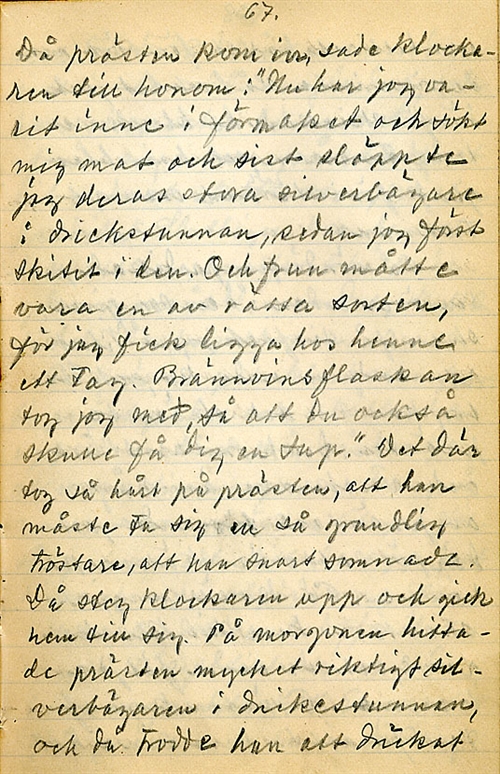 67.
Då prästen kom in, sade klocka-
ren till honom: "Nu har jag va-
rit inne i förmaket och sökt
mig mat och sist släppte
jag deras stora silverbägare
i drickstunnan, sedan jag först
skitit i den. Och frun måtte
vara en av rätta sorten,
för jag fick ligga hos henne
ett tag. Brännvinsflaskan
tog jag med, så att du också
skulle få dig en sup." Det där
tog så hårt på prästen, att han
måste ta sig en så grundlig
tröstare, att han snart somnade.
Då steg klockaren upp och gick
hem till sig. På morgonen hitta-
de prästen mycket riktigt sil-
verbägaren i drickestunnan,
och då trodde han att drickat